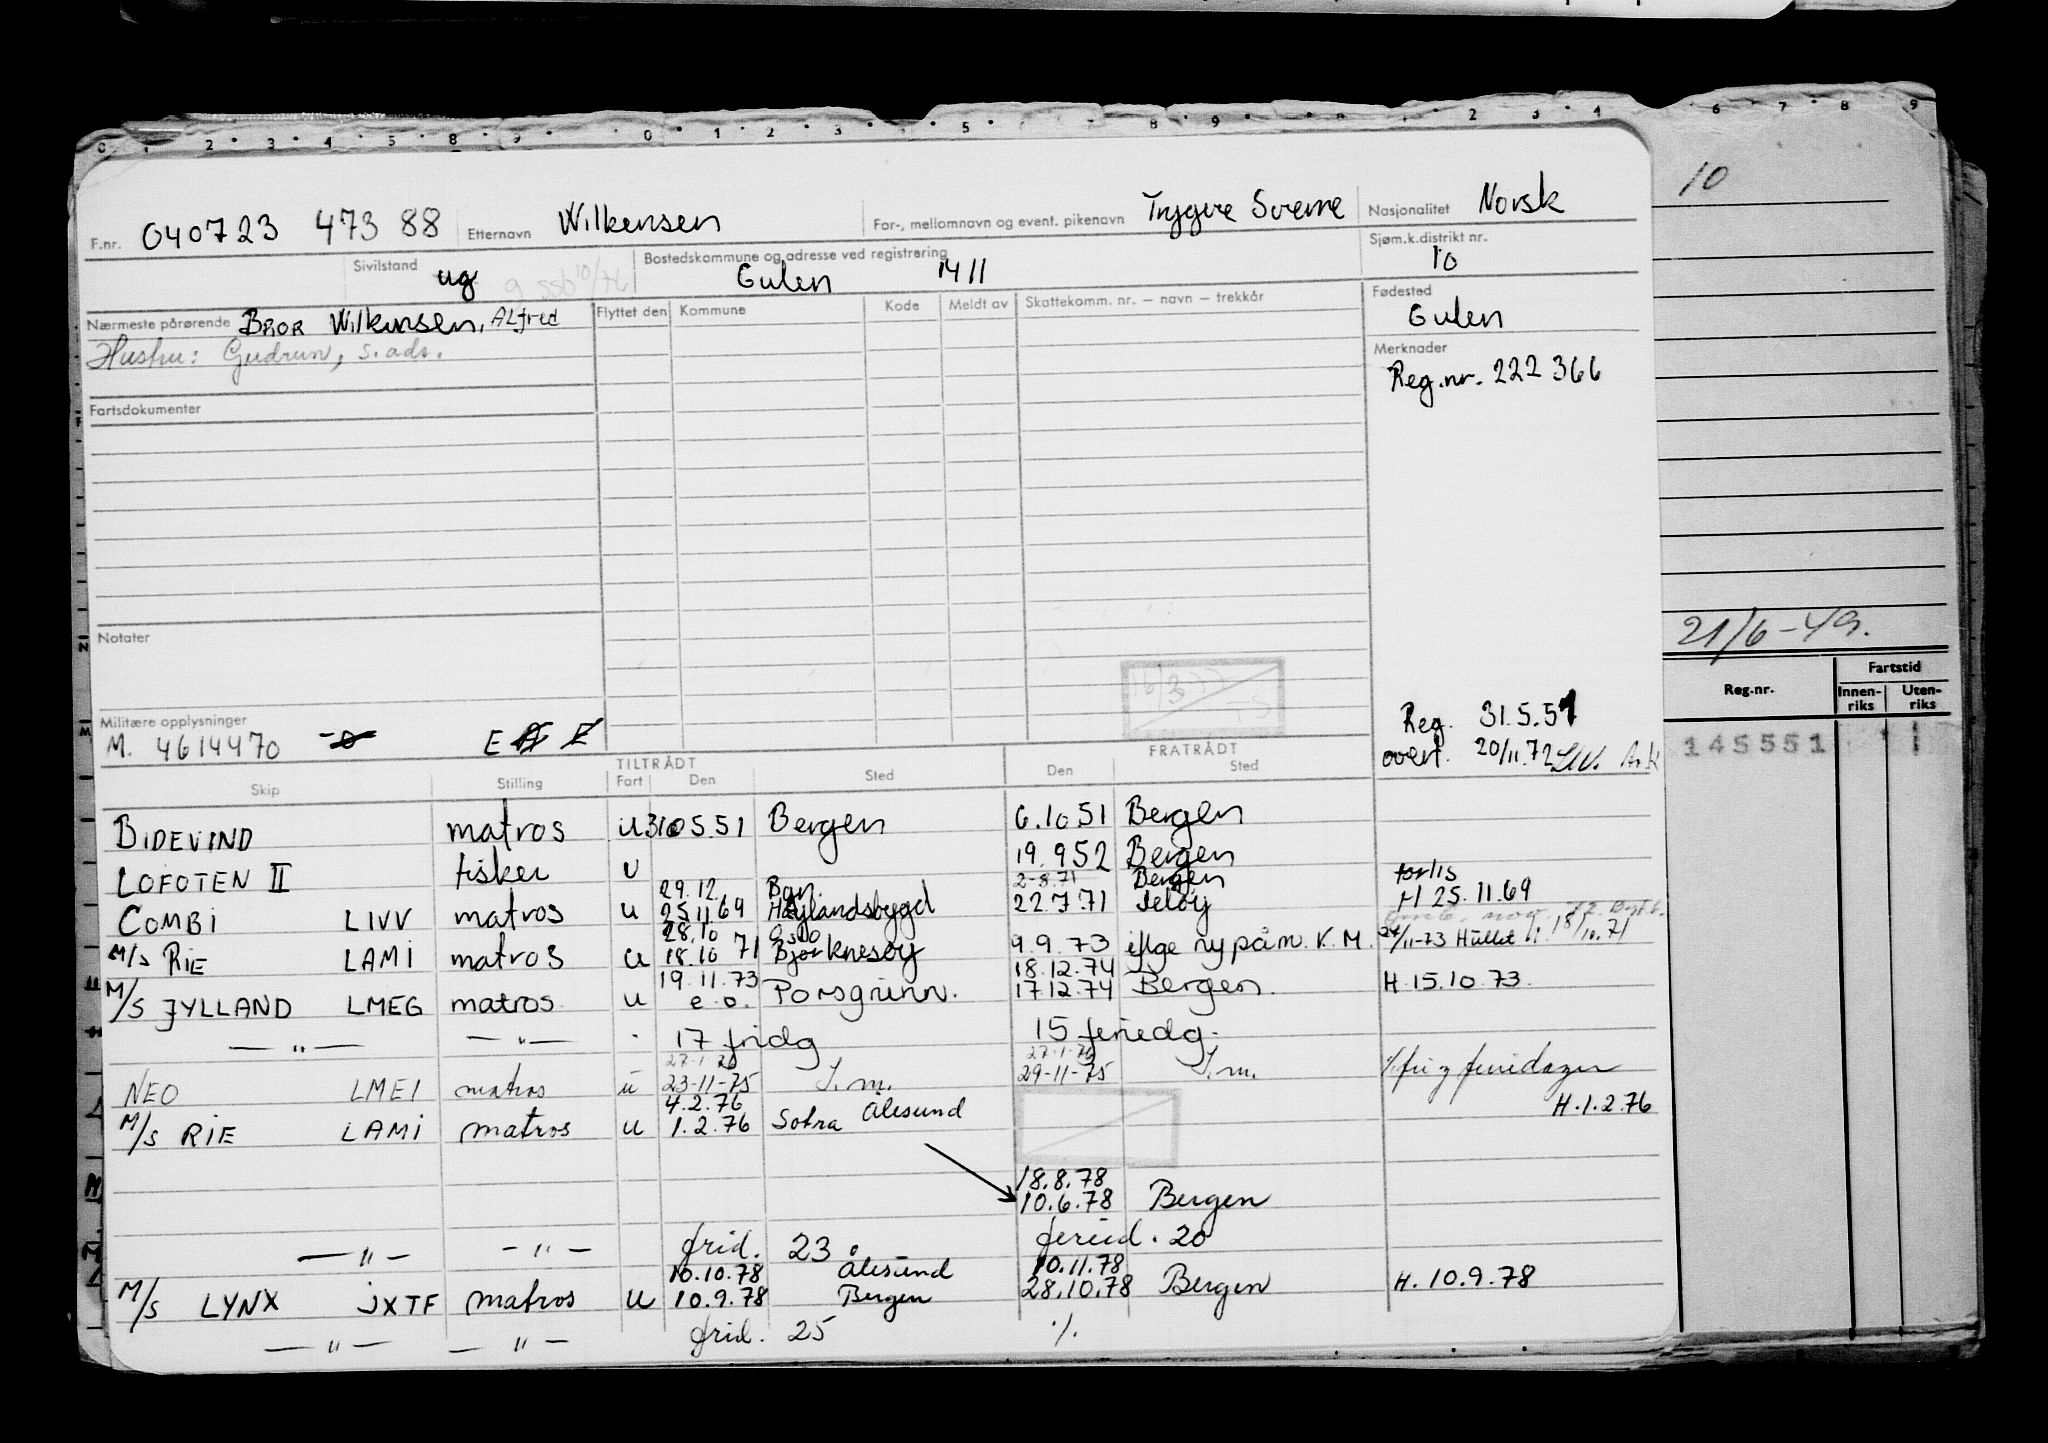 10
F.nr. 040723 473 88 Etternavn Wilkensen For-, mellomnavn og event. pikenavn Tryggve Sverre Nasjonalitet Norsk
Sivilstand ug g ssb 10/76 Bostedskommune og adresse ved registrering Gulen 1411 Sjøm.k.distrikt nr. 10
Nærmeste pårørende Bror Wilkensen, Alfred Flyttet den Kommune Kode Meldt av Skattekomm. nr. – navn – trekkår Fødested Gulen
Hustru: Gudrun, s. ads.
Merknader
Reg.nr. 222 366
Fartsdokumenter
Notater
21/6-49.
Reg.nr. Fartstid
Innen-riks Uten-riks
16/3 77
Militære opplysninger
M. 4614470 E
Reg. 31.5.51
overf. 20/11.72
145551
TILTRÅDT FRATRÅDT
Skip Stilling Fart Den Sted Den Sted
BIDEVIND matros u 31.05.51 Bergen 6.10.51 Bergen
LOFOTEN II fisker u 19.9.52 Bergen
29.12. Bgn. 2-8.71 Bergen forlis
COMBI LIVV matros u 25.11.69 Høylandsbygd 22.7.71 H 25.11.69
28.10 Oslo
M/S RIE LAMI matros u 18.10 71 Bjorknesøy 9.9.73 iflge ny påm. K.M. 24/11-73 18/10.71
19.11.73 18.12.74
M/S JYLLAND LMEG matros u e.o. Porsgrunn. 17.12.74 Bergen. H.15.10.73.
— " — — " — 17 fridg 15 feriedg.
27.1.76 27.1.76
NEO LMEI matros u 23-11-75 S.m. 29-11-75 S.m. % fri g feriedager
4.2.76 Ålesund H.1.2.76
M/S RIE LAMI matros u 1.2.76 Sotra
18.8.78
10.6.78 Bergen
— " — — " — frid. 23 feried. 20
10.10.78 Ålesund 10.11.78
M/S LYNX JXTF matros u 10.9.78 Bergen 28.10.78 Bergen H. 10.9.78
— " — — " — frid. 25 %